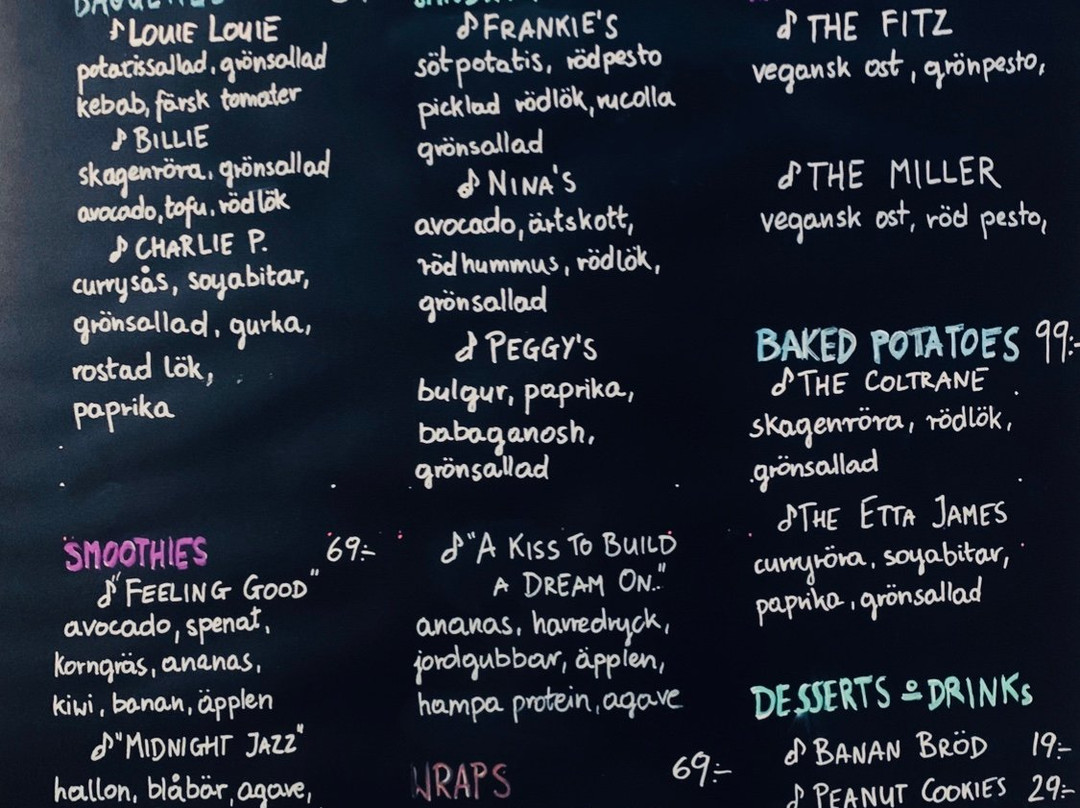 ♪ LOUIE LOUIE
potatissallad, grönsallad
kebab, färsk tomater
♪ BILLIE
skagenröra, grönsallad
avocado, tofu, rödlök
♪ CHARLIE P.
currysås, soyabitar,
grönsallad, gurka,
rostad lök,
paprika
SMOOTHIES 69:-
♪"FEELING GOOD"
avocado, spenat,
korngräs, ananas,
kiwi, banan, äpplen
♪"MIDNIGHT JAZZ"
hallon, blåbär, agave,
♪ FRANKIE'S
sötpotatis, rödpesto
picklad rödlök, rucolla
grönsallad
♪ NINA'S
avocado, ärtskott,
rödhummus, rödlök,
grönsallad
♪ PEGGY'S
bulgur, paprika,
babaganosh,
grönsallad
♪"A KISS TO BUILD
A DREAM ON.."
ananas, havredryck,
jordgubbar, äpplen,
hampa protein, agave
WRAPS 69:-
♪ THE FITZ
vegansk ost, grönpesto,
♪ THE MILLER
vegansk ost, röd pesto,
BAKED POTATOES 99:-
♪ THE COLTRANE
skagenröra, rödlök,
grönsallad
♪ THE ETTA JAMES
curryröra, soyabitar,
paprika, grönsallad
DESSERTS & DRINKS
♪ BANAN BRÖD 19:-
♪ PEANUT COOKIES 29:-